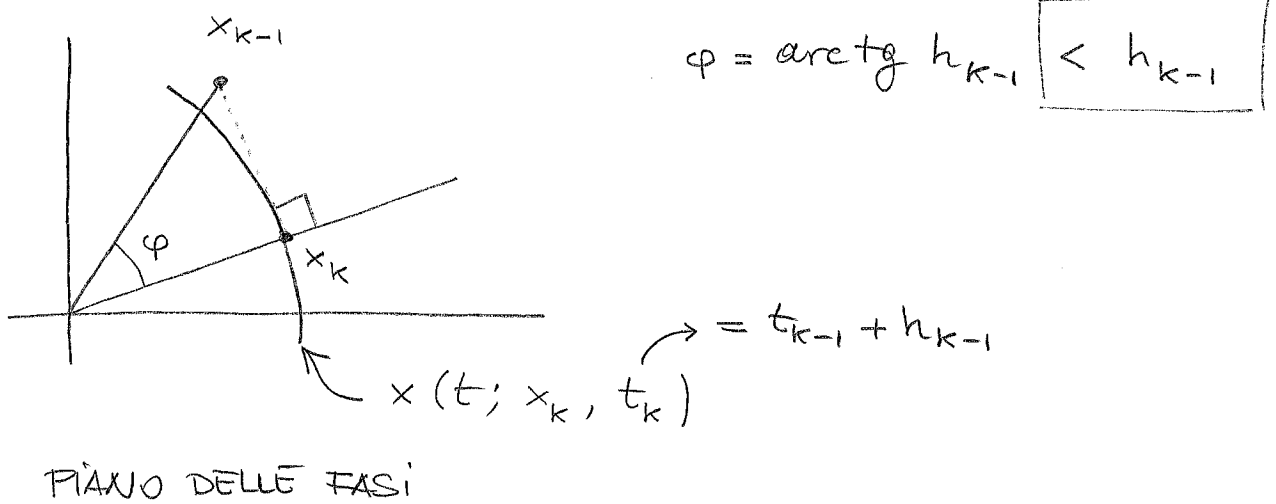 x_{k-1}
φ = arctg h_{k-1} < h_{k-1}
φ
x_k
= t_{k-1} + h_{k-1}
x (t; x_k, t_k)
PIANO DELLE FASI